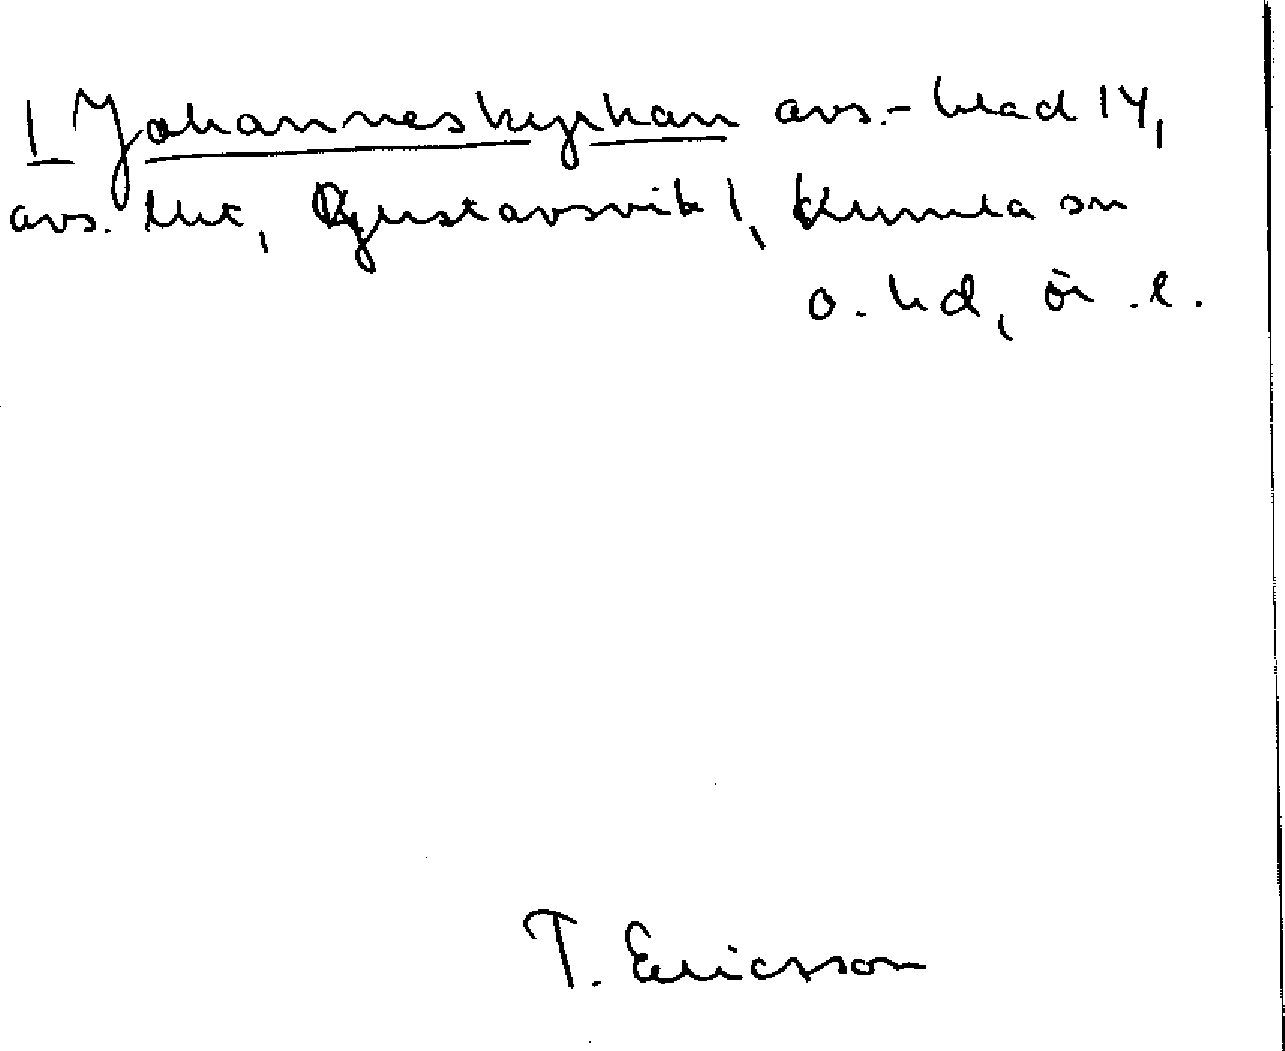 I Johanneskyrkan avs.-blad 14,
avs. litt, Gustavsvik 1, Kumla sn
o. hd, ör .l.
T. Ericsson